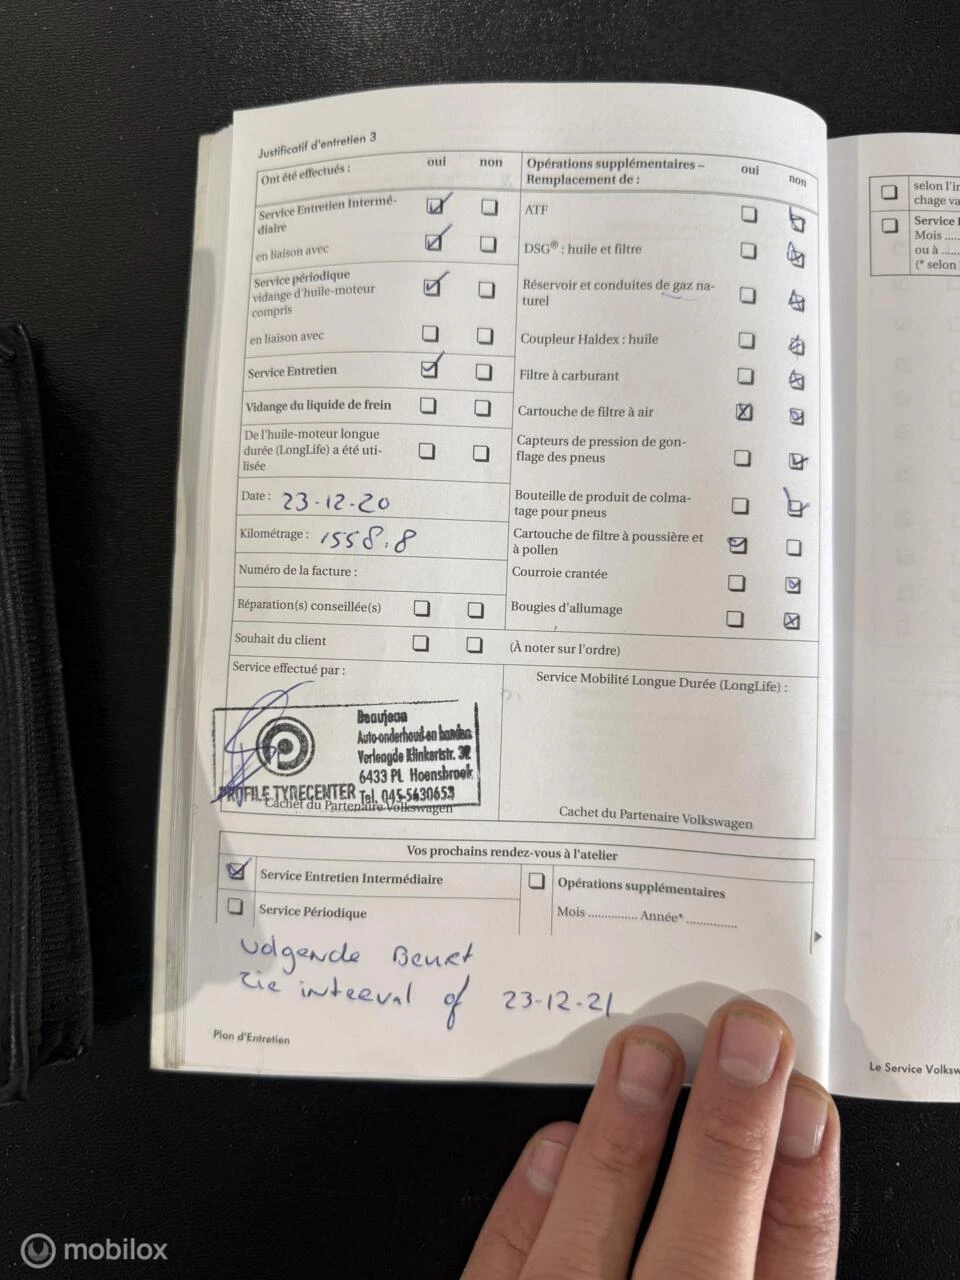 Justificatif d'entretien 3
Ont été effectués :
oui
non
Service Entretien Intermé-
diaire
en liaison avec
Service périodique
vidange d'huile-moteur
compris
en liaison avec
Service Entretien
Vidange du liquide de frein
De l'huile-moteur longue
durée (LongLife) a été uti-
lisée
Date : 23-12-20
Kilométrage : 1558.8
Numéro de la facture :
Réparation(s) conseillée(s)
Souhait du client
(À noter sur l'ordre)
Opérations supplémentaires –
Remplacement de :
oui
non
ATF
DSG® : huile et filtre
Réservoir et conduites de gaz na-
turel
Coupleur Haldex : huile
Filtre à carburant
Cartouche de filtre à air
Capteurs de pression de gon-
flage des pneus
Bouteille de produit de colma-
tage pour pneus
Cartouche de filtre à poussière et
à pollen
Courroie crantée
Bougies d'allumage
Service effectué par :
Beaujean
Auto-onderhoud en banden
Verlengde Klinkertstr. 32
6433 PL Hoensbroek
PROFILE TYRECENTER Tel. 045-5630653
Cachet du Partenaire Volkswagen
Service Mobilité Longue Durée (LongLife) :
Cachet du Partenaire Volkswagen
Vos prochains rendez-vous à l'atelier
Service Entretien Intermédiaire
Service Périodique
Opérations supplémentaires
Mois ............... Année* ...............
Volgende Beurt
zie interval of 23-12-21
Plan d'Entretien
selon l'in
chage va
Service
Mois .....
ou à .....
(* selon
Le Service Volksw
mobilox